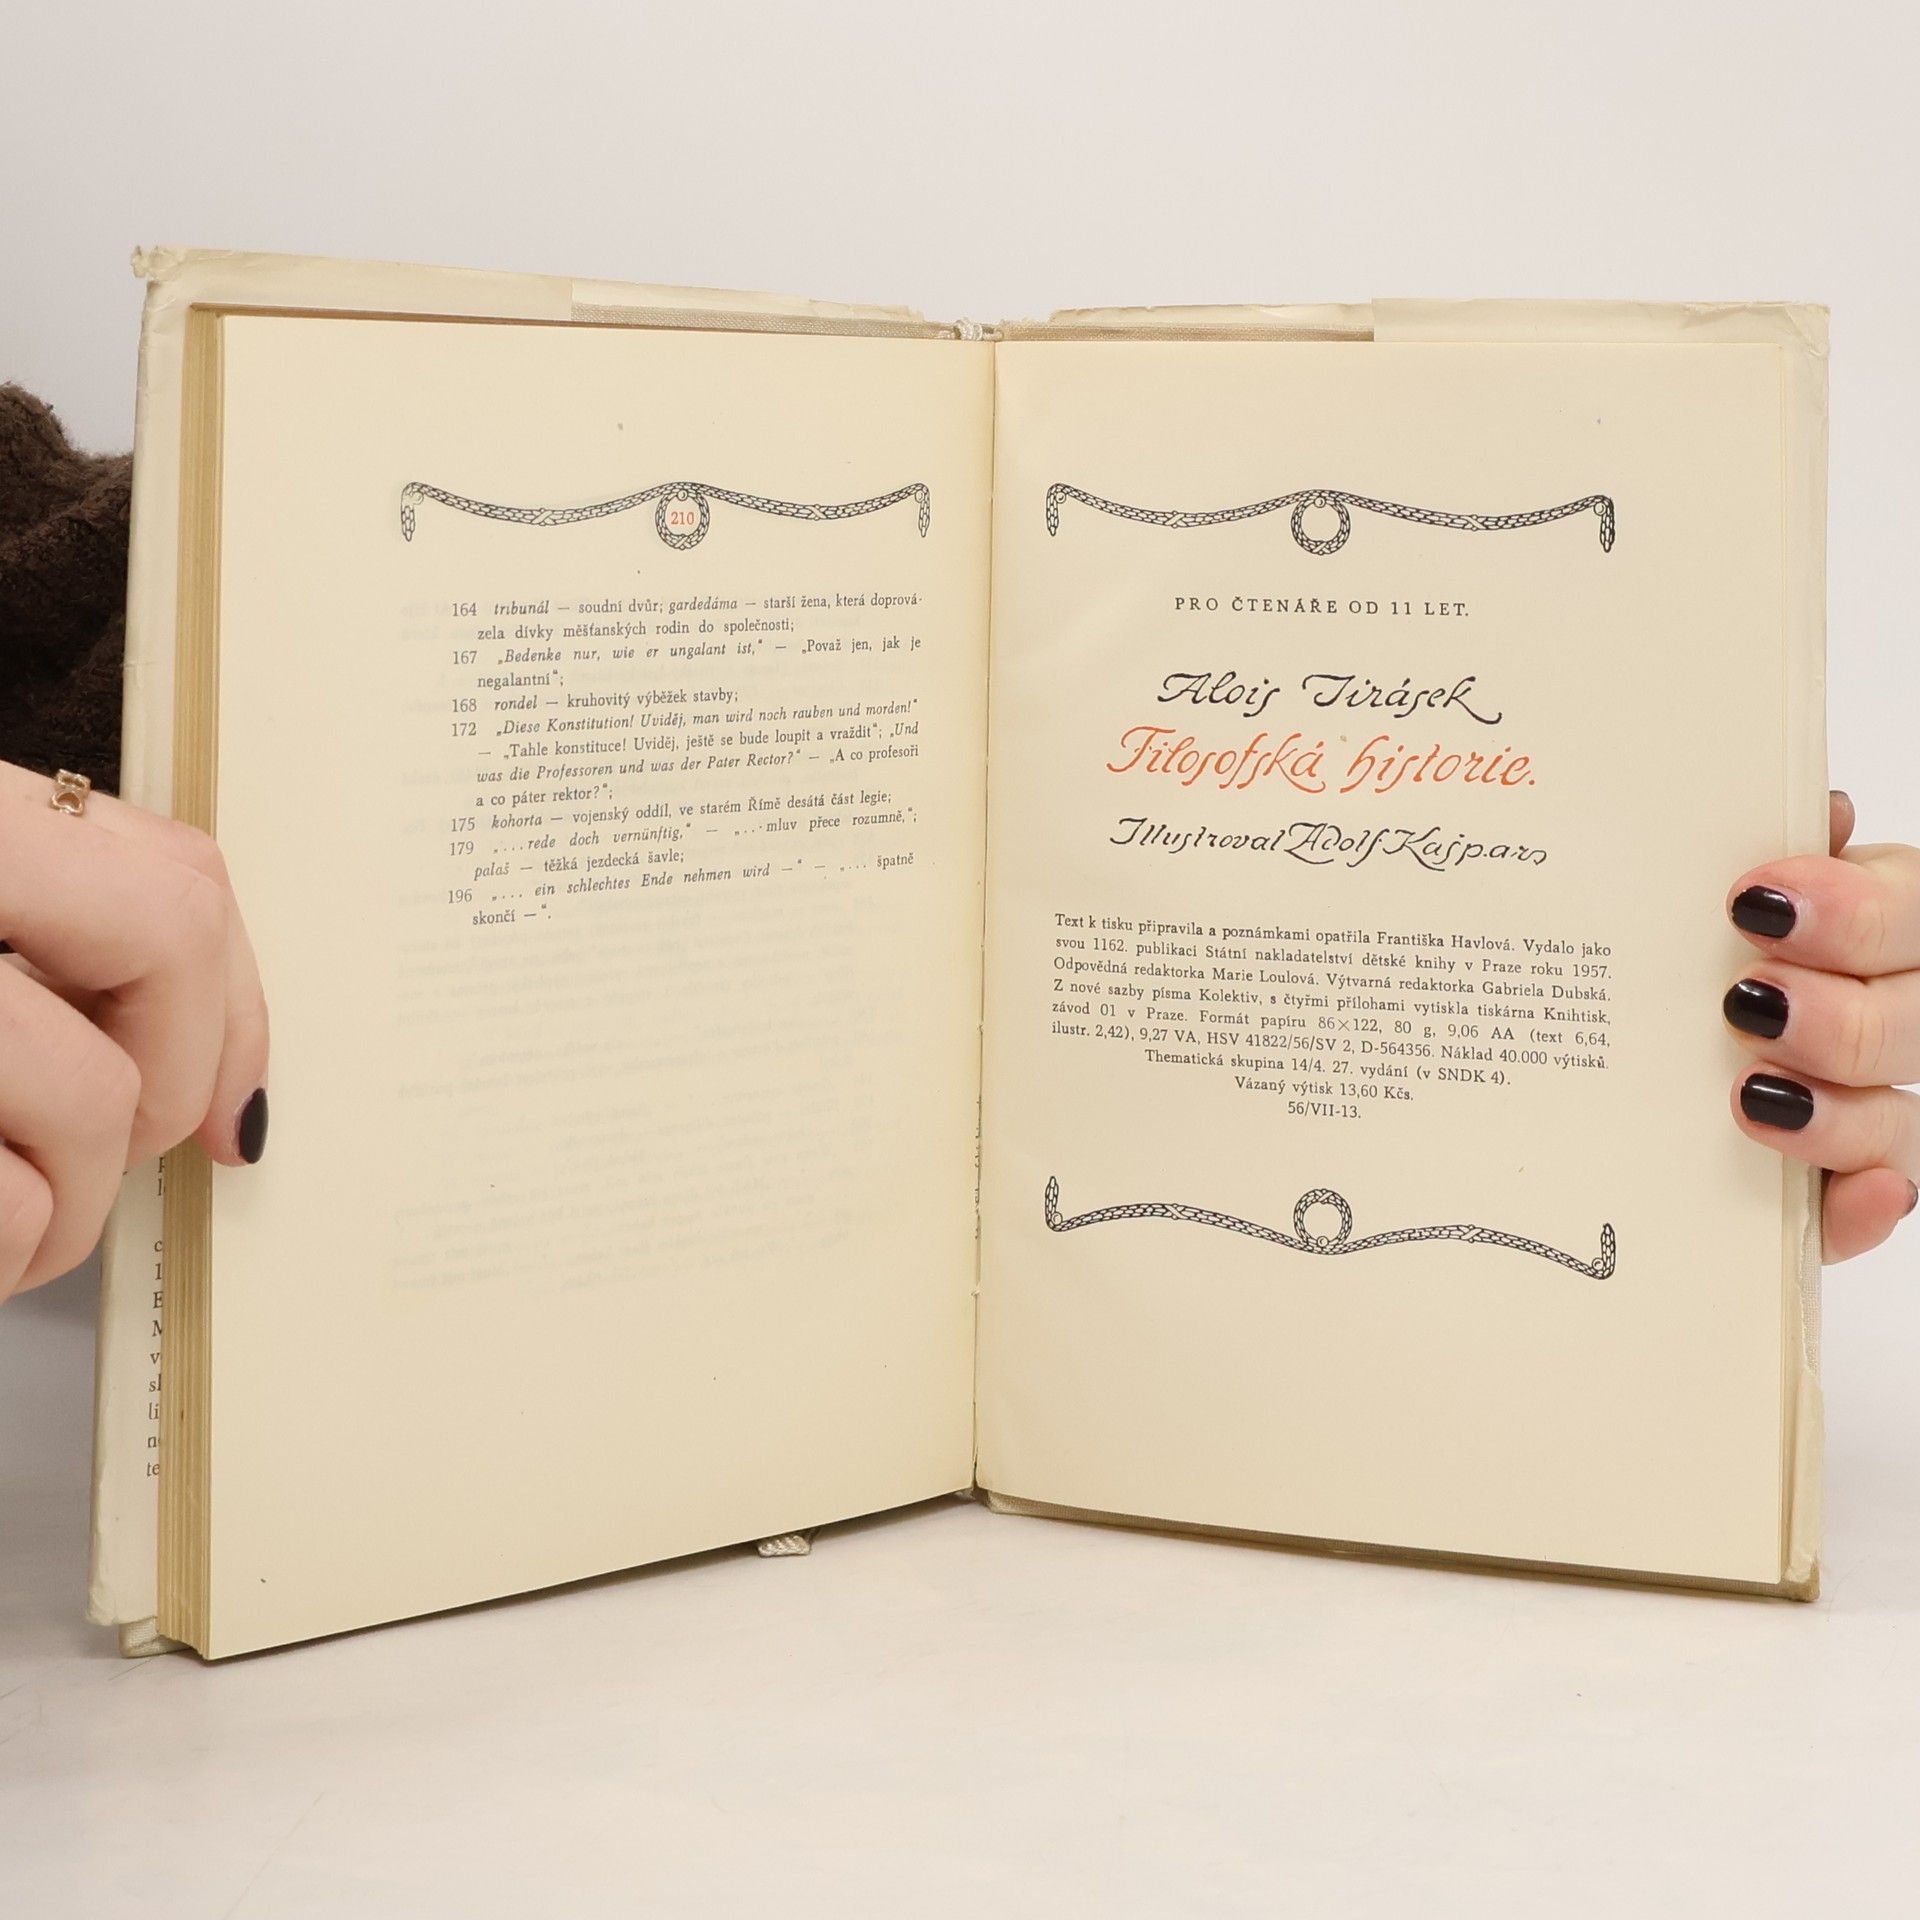 210
164 tribunál — soudní dvůr; gardedáma — starší žena, která doprová-
zela dívky měšťanských rodin do společnosti;
167 „Bedenke nur, wie er ungalant ist,“ — „Považ jen, jak je
negalantní“;
168 rondel — kruhovitý výběžek stavby;
172 „Diese Konstitution! Uviděj, man wird noch rauben und morden!“
— „Tahle konstituce! Uviděj, ještě se bude loupit a vraždit“; „Und
was die Professoren und was der Pater Rector?“ — „A co profesoři
a co páter rektor?“;
175 kohorta — vojenský oddíl, ve starém Římě desátá část legie;
179 „...rede doch vernünftig,“ — „...mluv přece rozumně,“;
palaš — těžká jezdecká šavle;
196 „... ein schlechtes Ende nehmen wird —“ — „... špatně
skončí —“.
PRO ČTENÁŘE OD 11 LET.
Alois Jirásek
Filosofská historie.
Illustroval Adolf Kašpar
Text k tisku připravila a poznámkami opatřila Františka Havlová. Vydalo jako
svou 1162. publikaci Státní nakladatelství dětské knihy v Praze roku 1957.
Odpovědná redaktorka Marie Loulová. Výtvarná redaktorka Gabriela Dubská.
Z nové sazby písma Kolektiv, s čtyřmi přílohami vytiskla tiskárna Knihtisk,
závod 01 v Praze. Formát papíru 86×122, 80 g, 9,06 AA (text 6,64,
ilustr. 2,42), 9,27 VA, HSV 41822/56/SV 2, D-564356. Náklad 40.000 výtisků.
Thematická skupina 14/4. 27. vydání (v SNDK 4).
Vázaný výtisk 13,60 Kčs.
56/VII-13.